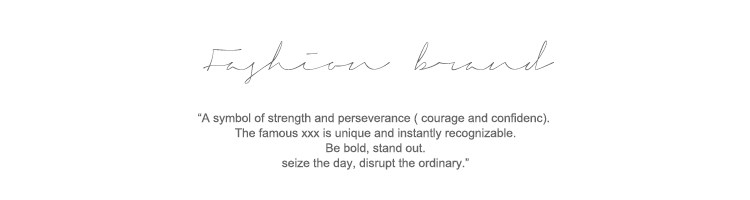 Fashion brand
“A symbol of strength and perseverance ( courage and confidenc).
The famous xxx is unique and instantly recognizable.
Be bold, stand out.
seize the day, disrupt the ordinary.”